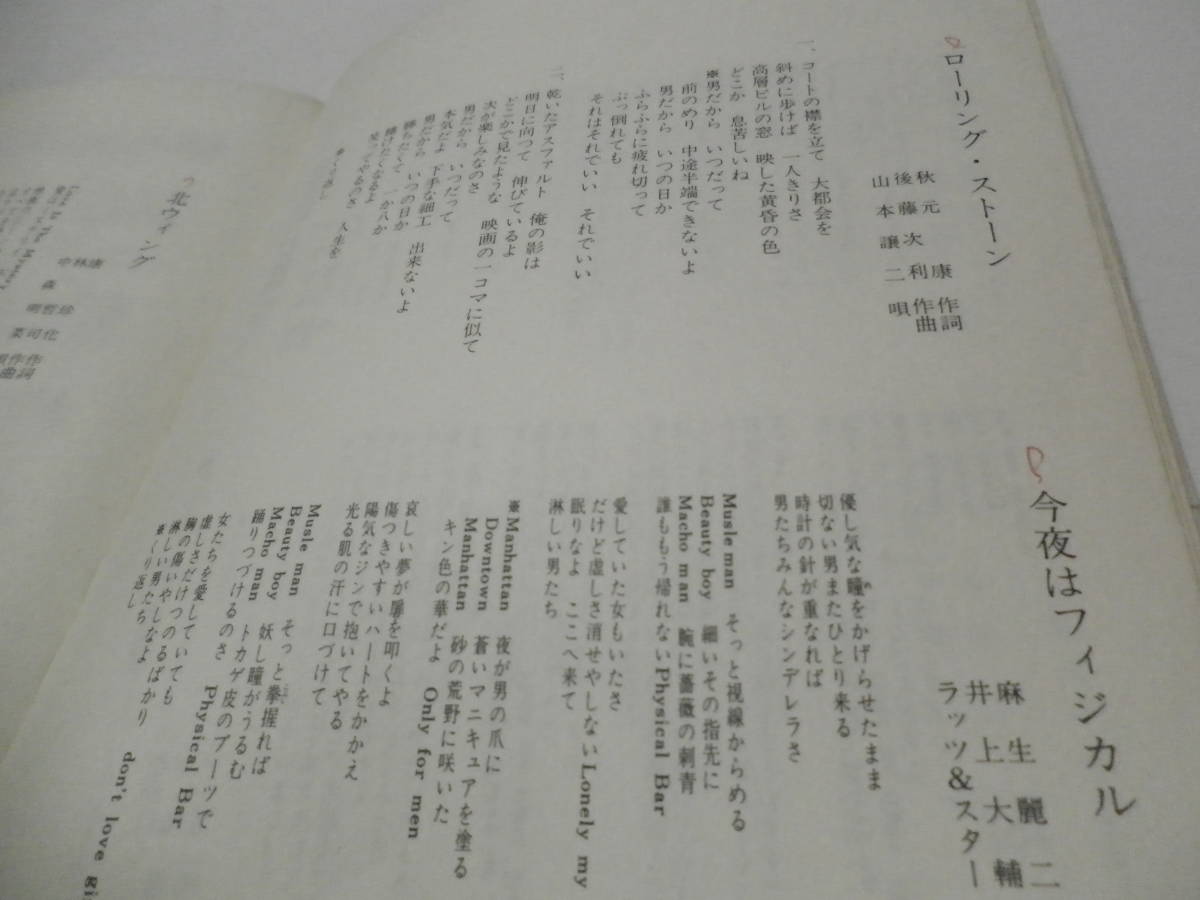 ローリング・ストーン
秋元 康 作詞
後藤次利 作曲
山本譲二 唄
一、コートの襟を立て 大都会を
斜めに歩けば 一人きりさ
高層ビルの窓 映した黄昏の色
どこか 息苦しいね
※男だから いつだって
前のめり 中途半端できないよ
男だから いつの日か
ふらふらに疲れ切って
ぶっ倒れても
それはそれでいい それでいい
二、乾いたアスファルト 俺の影は
明日に向って 伸びているよ
どこかで見たような 映画の一コマに似て
次が楽しみなのさ
男だから いつだって
本気だよ 下手な細工 出来ないよ
男だから いつの日か
勝ちたくて 一か八か
賭けたくなるよ
笑ってやるのさ 人生を
※くり返し
今夜はフィジカル
麻生麗二
井上大輔
ラッツ&スター
優し気な瞳をかげらせたまま
切ない男またひとり来る
時計の針が重なれば
男たちみんなシンデレラさ
Musle man そっと視線からめる
Beauty boy 細いその指先に
Macho man 腕に薔薇の刺青
誰ももう帰れないPhysical Bar
愛していた女もいたさ
だけど虚しさ消せやしないLonely my
眠りなよ ここへ来て
淋しい男たち
※Manhattan 夜が男の爪に
Downtown 蒼いマニキュアを塗る
Manhattan 砂の荒野に咲いた
キン色の華だよ Only for men
哀しい夢が扉を叩くよ
傷つきやすいハートをかかえ
陽気なジンで抱いてやる
光る肌の汗に口づけて
Musle man そっと拳握れば
Beauty boy 妖し瞳がうるむ
Macho man トカゲ皮のブーツで
踊りつづけるのさ Physical Bar
女たちを愛していても
虚しさだけつのるばかり don't love gi
胸の傷いやしなよ
淋しい男たち
※くり返し
北ウィング
康 珍化 作詞
林 哲司 作曲
中森明菜 唄
Love Is The Mystery